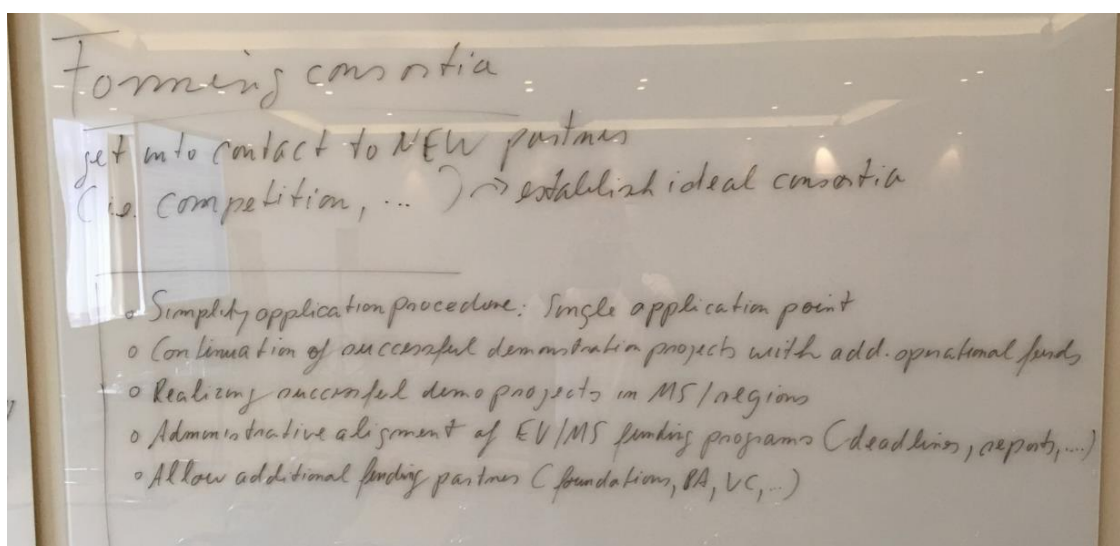 Forming consortia
get into contact to NEW partners
(i.e. competition, ... ) → establish ideal consortia
o Simplify application procedure: Single application point
o Continuation of successful demonstration projects with add. operational funds
o Realizing successful demo projects in MS/regions
o Administrative aligment of EU/MS funding programs (deadlines, reports, ....)
o Allow additional funding partner (foundations, BA, VC, ..)